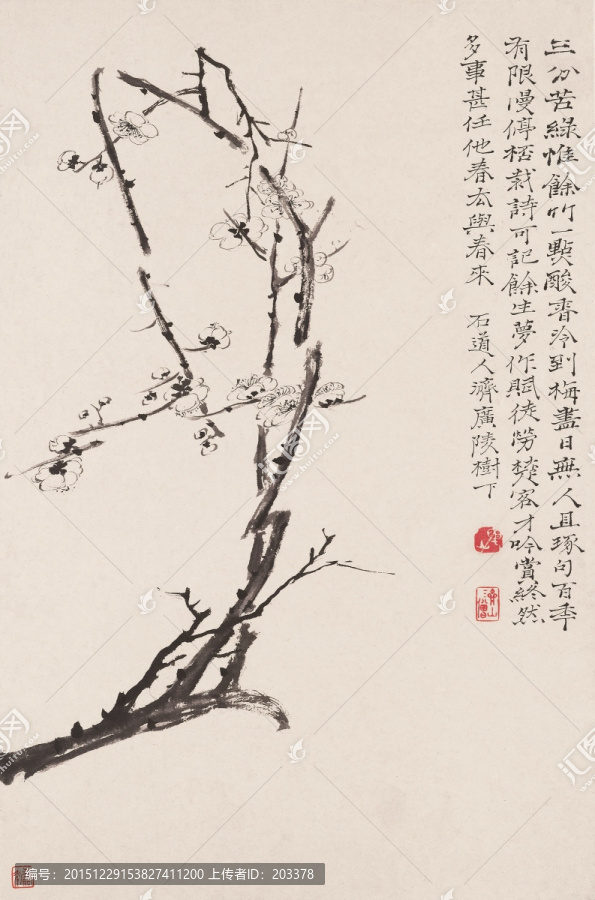 三分苦綠惟餘竹一點酸香冷到梅盡日無人且琢句百年
有限慢停杯栽詩可記餘生夢作賦徒勞楚客才吟賞終然
多事甚任他春去與春來 石道人濟廣陵樹下
编号：20151229153827411200 上传者ID：203378